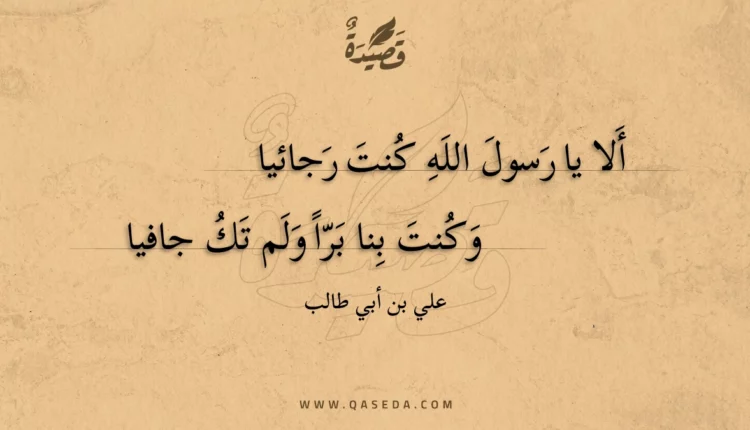 قَصِيدَةٌ
أَلا يا رَسولَ اللَهِ كُنتَ رَجائيا
وَكُنتَ بِنا بَرّاً وَلَم تَكُ جافيا
علي بن أبي طالب
WWW.QASEDA.COM